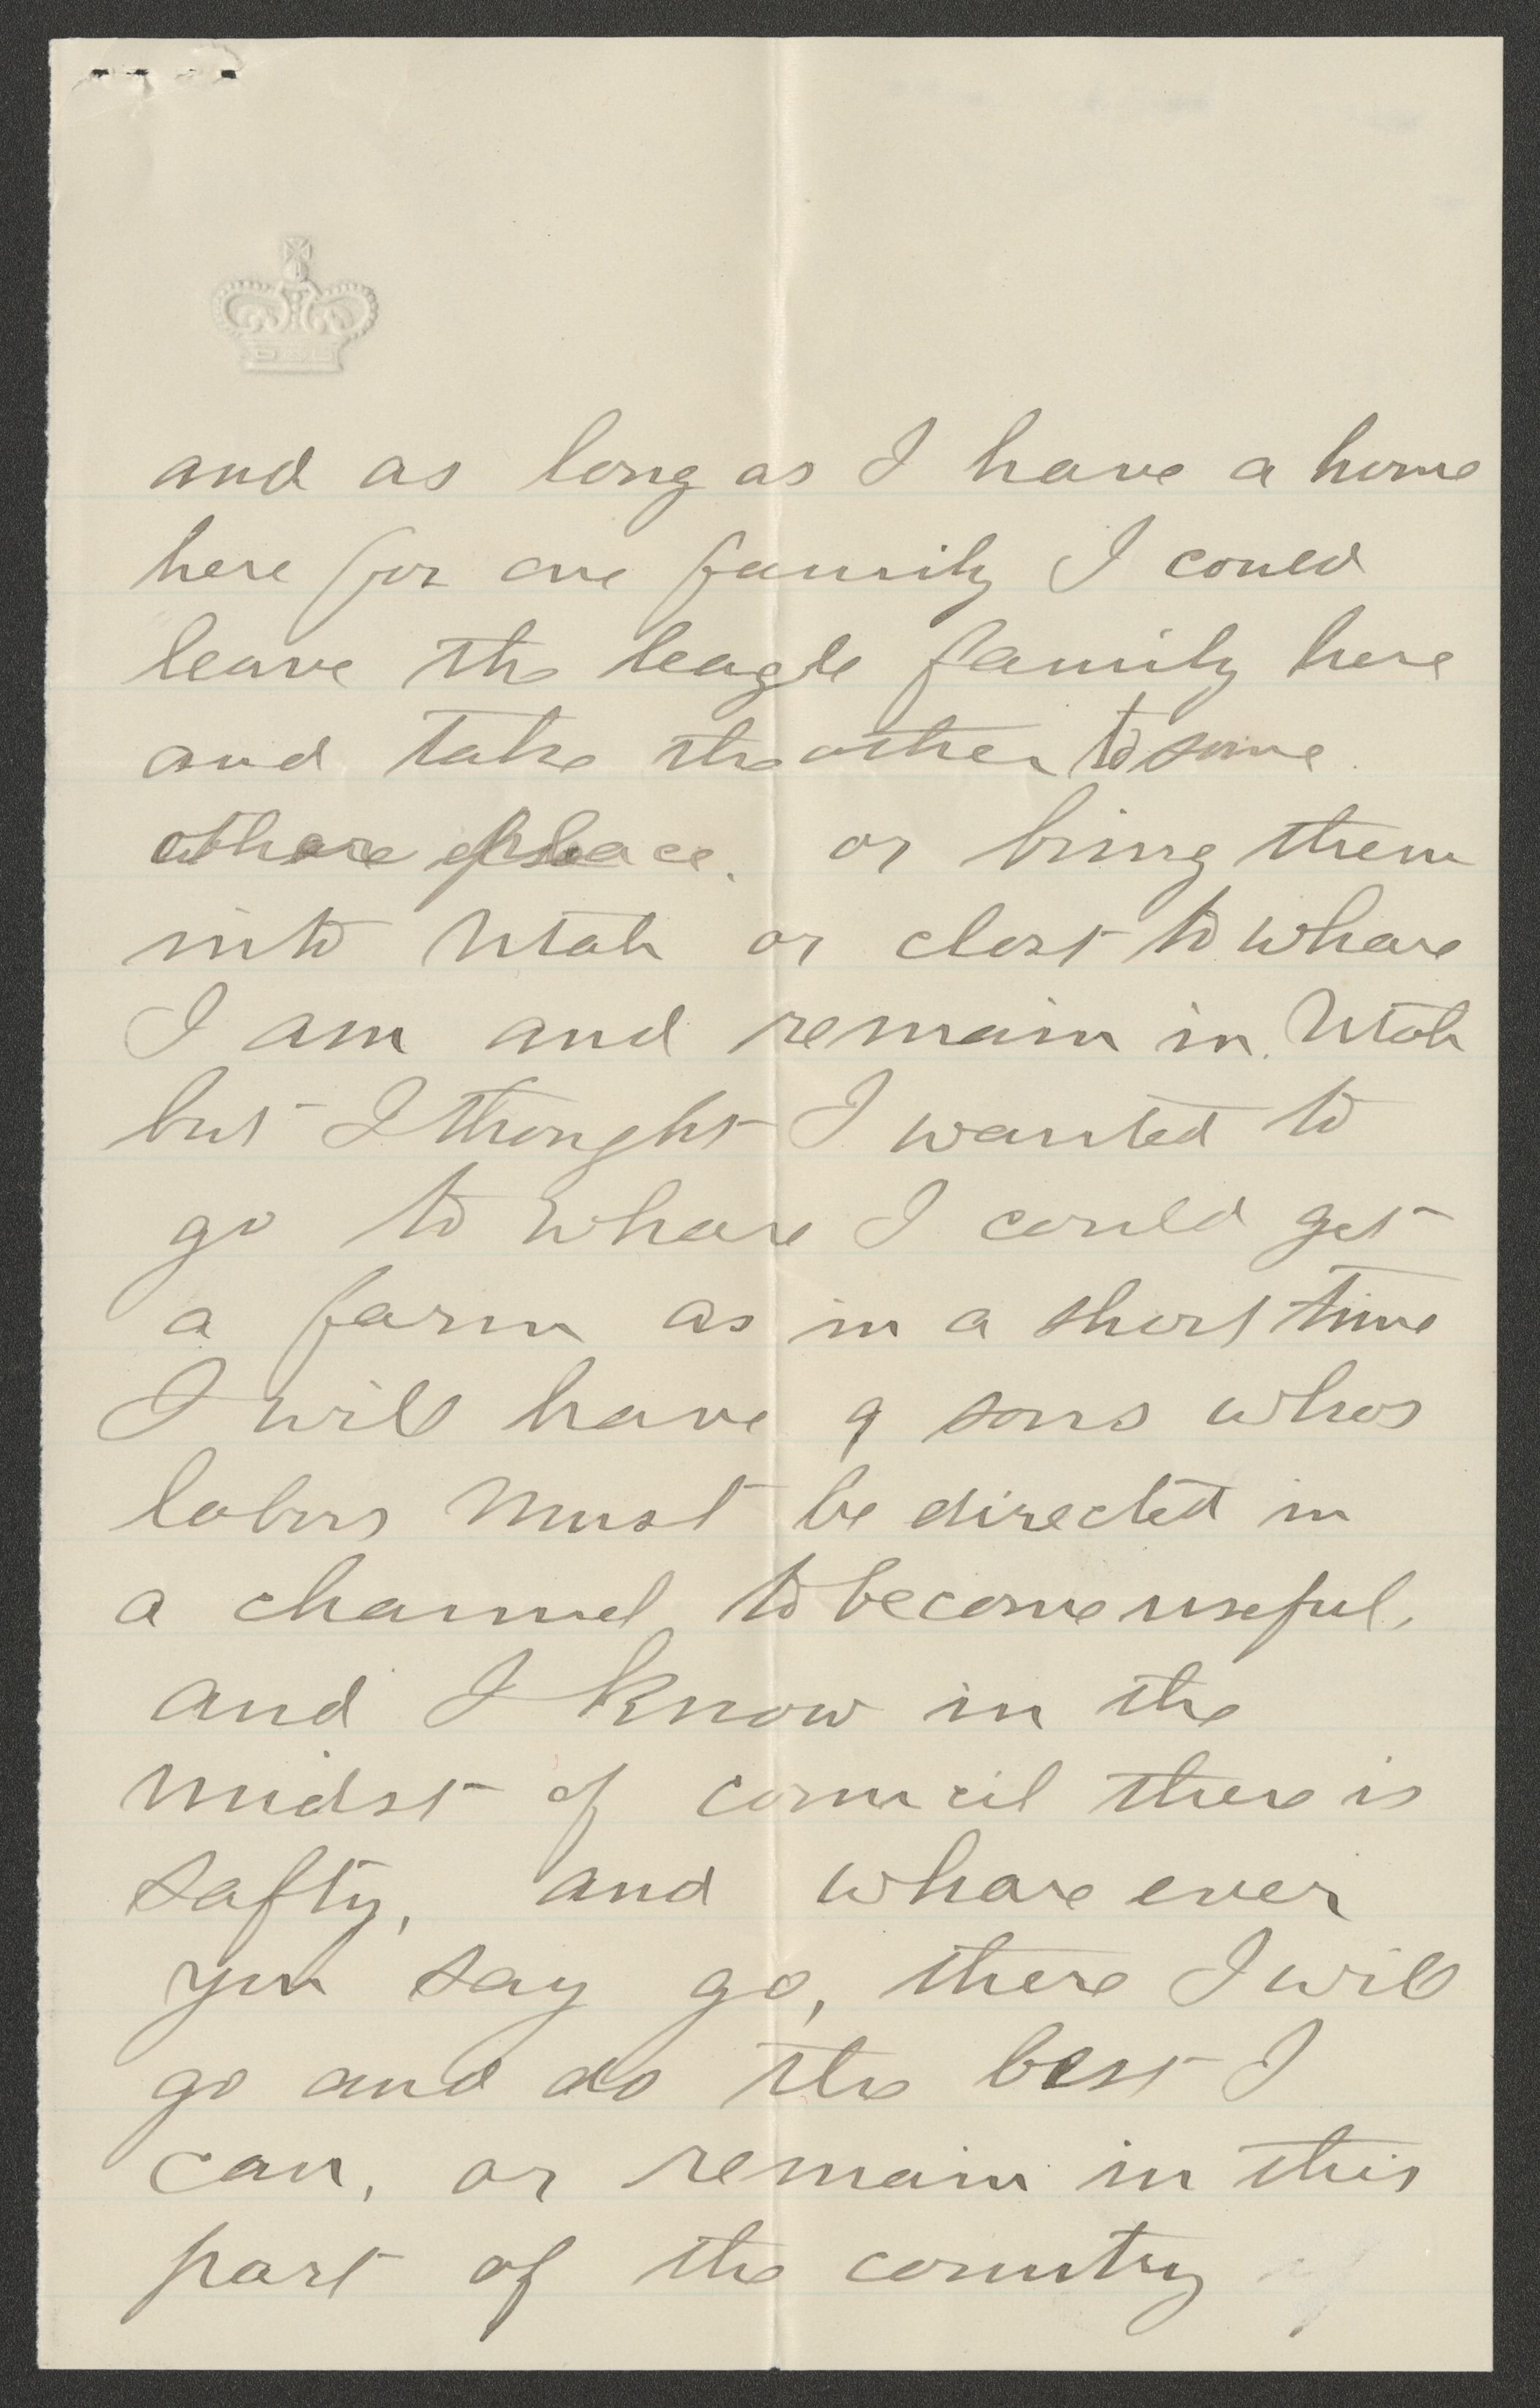 and as long as I have a home
here for one family I could
leave the leagle family here
and take the other to some
othere place. or bring them
into Utah or clost to whare
I am and remain in Utah
but I thought I wanted to
go to whare I could get
a farm as in a short time
I will have 9 sons whos
labors must be directed in
a channel to become useful,
and I know in the
midst of council there is
safty, and whare ever
you say go, there I will
go and do the best I
can, or remain in this
part of the country